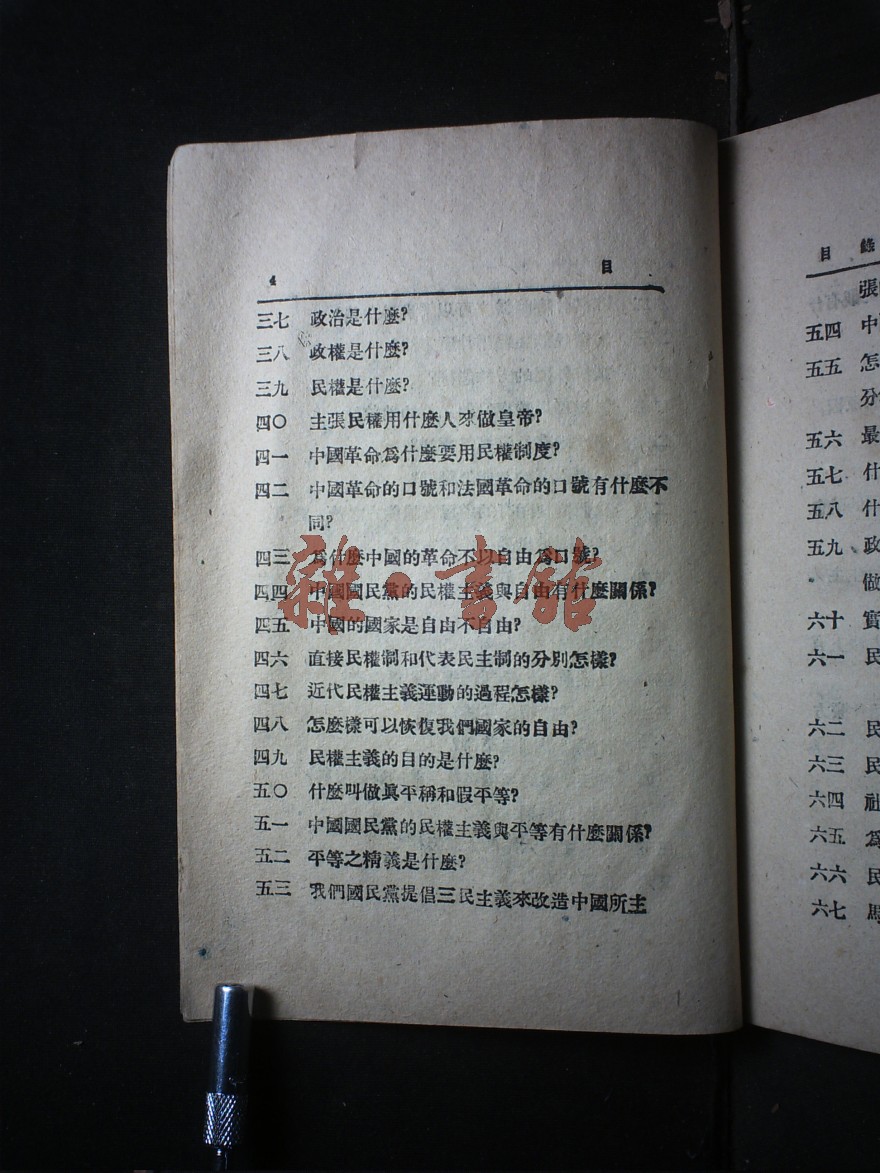 4 目
三七 政治是什麼?
三八 政權是什麼?
三九 民權是什麼?
四〇 主張民權用什麼人來做皇帝?
四一 中國革命爲什麼要用民權制度?
四二 中國革命的口號和法國革命的口號有什麼不
同?
四三 爲什麼中國的革命不以自由爲口號?
四四 中國國民黨的民權主義與自由有什麼關係?
四五 中國的國家是自由不自由?
四六 直接民權制和代表民主制的分別怎樣?
四七 近代民權主義運動的過程怎樣?
四八 怎麼樣可以恢復我們國家的自由?
四九 民權主義的目的是什麼?
五〇 什麼叫做眞平稱和假平等?
五一 中國國民黨的民權主義與平等有什麼關係?
五二 平等之精義是什麼?
五三 我們國民黨提倡三民主義來改造中國所主
雜·書館
目錄
張
五四 中
五五 怎
分
五六 最
五七 什
五八 什
五九 政
做
六十 實
六一 民
六二 民
六三 民
六四 社
六五 爲
六六 民
六七 馬